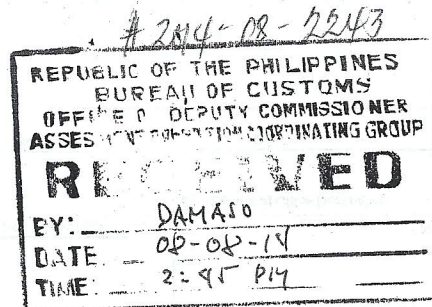 # 2014-08-2243
REPUBLIC OF THE PHILIPPINES
BUREAU OF CUSTOMS
OFFICE OF DEPUTY COMMISSIONER
ASSESSMENT OPERATION COORDINATING GROUP
RECEIVED
BY: DAMASO
DATE 08-08-14
TIME: 2:45 PM